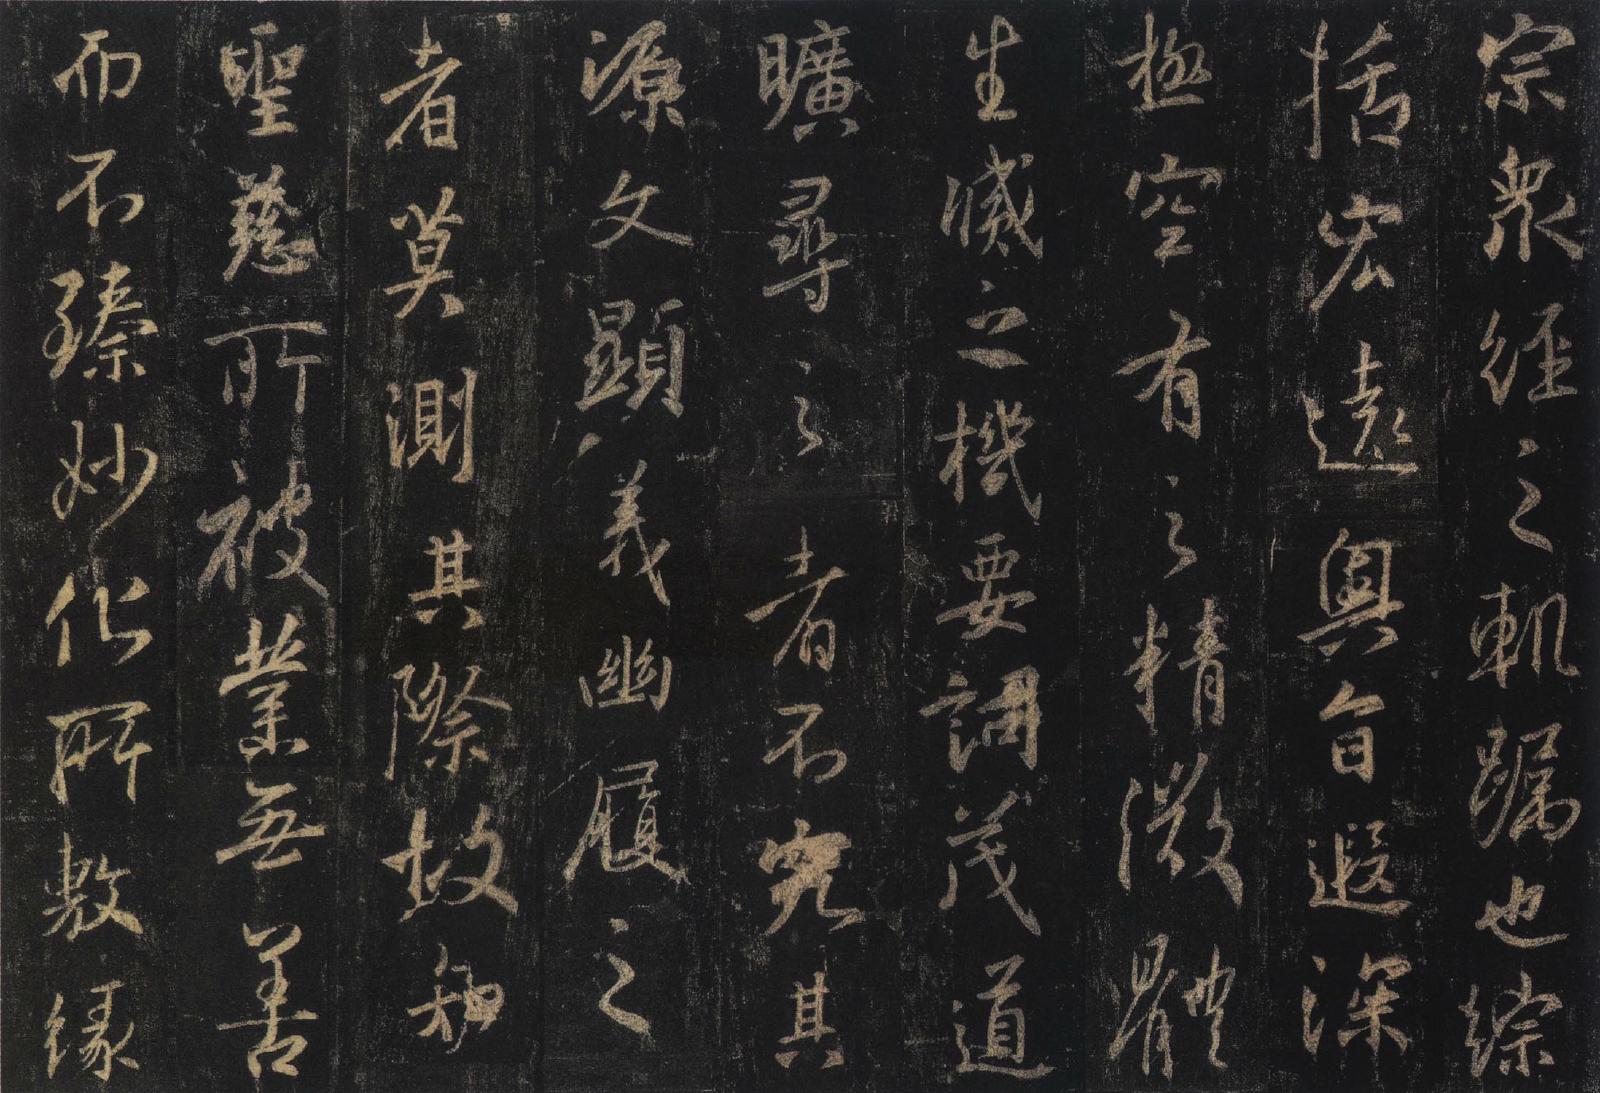 宗衆經之軌躅也綜
括宏遠奥旨遐深
極空有之精微體
生滅之機要詞茂道
曠尋之者不究其
源文顯義幽履之
者莫測其際故知
聖慈所被業無善
而不臻妙化所敷緣